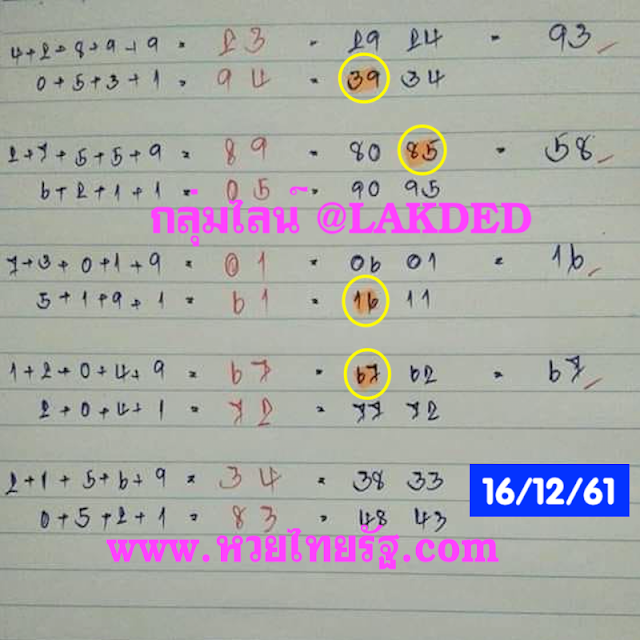 4+2+8+9+9 = 23 = 29 24 = 93
0+5+3+1 = 94 = 39 34
2+7+5+5+9 = 89 = 80 85 = 58
6+2+1+1 = 05 = 90 95
กลุ่มไลน์ @LAKDED
7+3+0+1+9 = 01 = 06 01 = 16
5+1+9+1 = 61 = 16 11
1+2+0+4+9 = 67 = 67 62 = 67
2+0+4+1 = 72 = 77 72
2+1+5+6+9 = 34 = 38 33
16/12/61
0+5+2+1 = 83 = 48 43
www.หวยไทยรัฐ.com